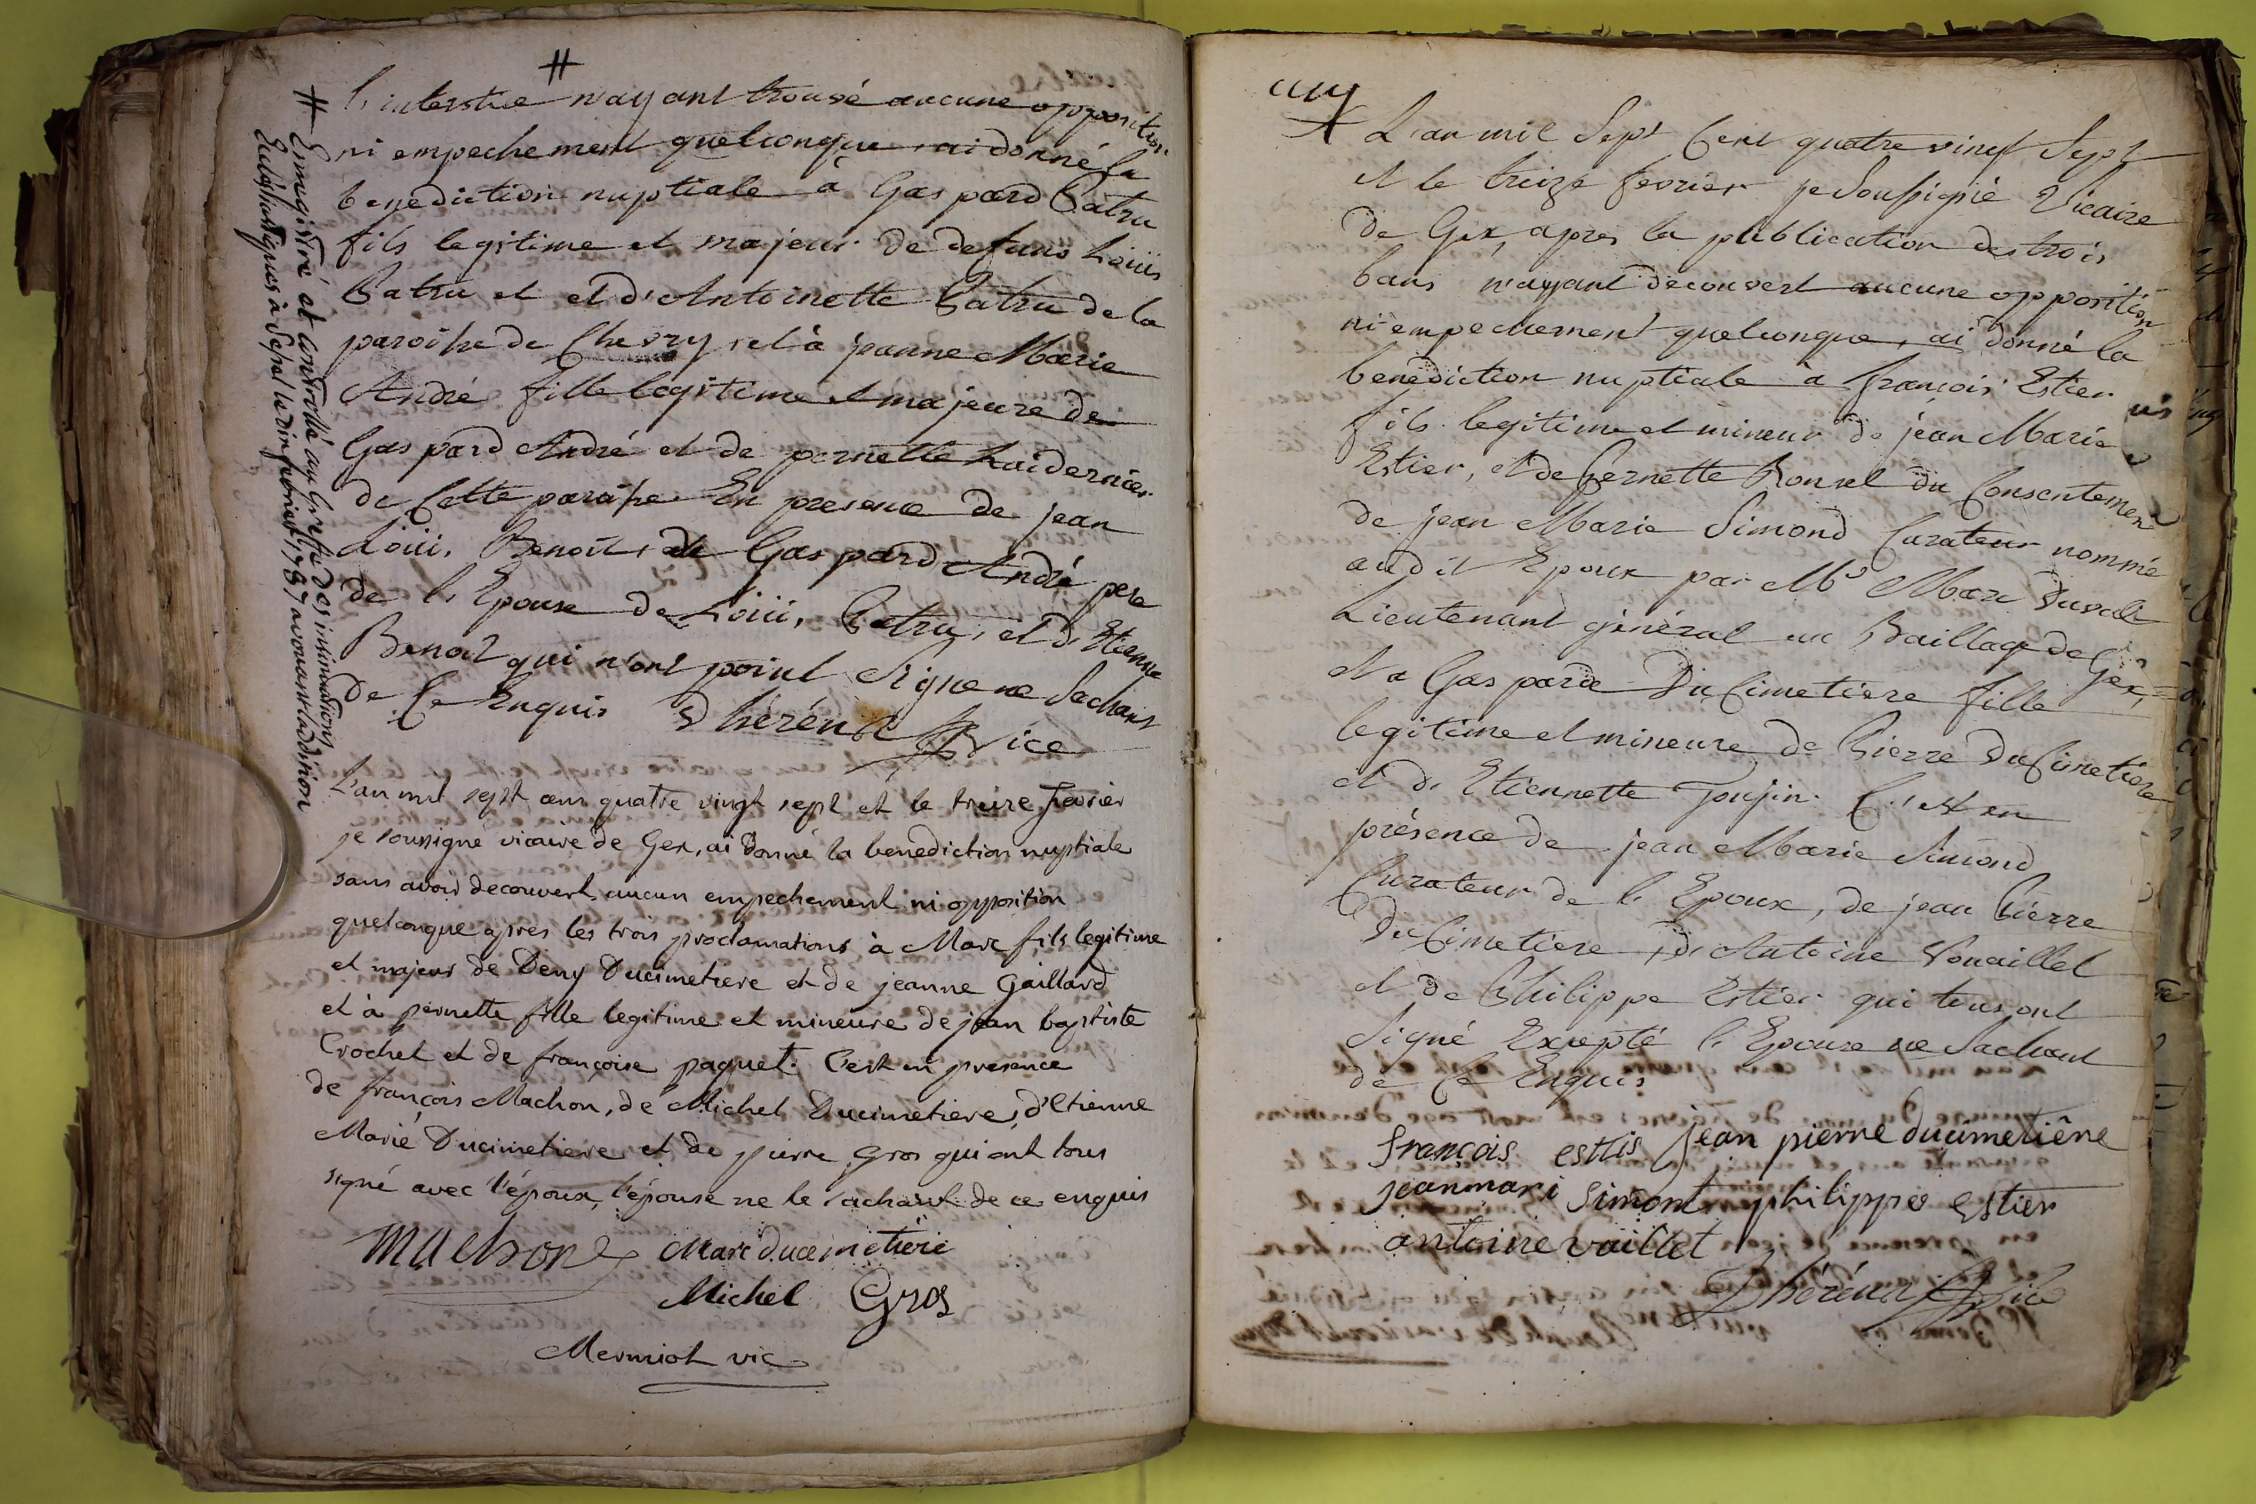 #
l'interstice n'ayant trouvé aucune opposition
ni empechement quelconque, ai donné la
benediction nuptiale à Gaspard Patru
fils legitime et majeur de defunt Loüis
Patru et et d'Antoinette Patru de la
paroisse de Chevry, et à jeanne Marie
André fille legitime et majeure de
Gaspard André et de pernette
de Cette paroisse En presence de jean
Loüis Benoit, de Gaspard André pere
de l'Epouse de Loüis Patru, et d'Etienne
Benoit qui n'ont point Signé ne Sachant
de Ce Enquis Dhérénx vice
# Enregistré et controllé au Greffe des insinuations
Ecclésiastiques à Seyssel le dix fevrier 1787 avouant laddition
L'an mil sept cent quatre vingt sept et le treize Fevrier
je soussigné vicaire de Gex, ai donné la benediction nuptiale
sans avoir decouvert aucun empechement ni opposition
quelconque apres les trois proclamations à Marc fils legitime
et majeur de Deny Ducimetiere et de jeanne Gaillard
et à pernette fille legitime et mineure de jean baptiste
Crochet et de françoise paquet. C'est en presence
de françois Machon, de Michel Ducimetiere, d'Etienne
Marie Ducimetiere et de pierre Gros qui ont tous
signé avec l'époux, l'épouse ne le sachant de ce enquis
Machon Marc ducimetiere
Michel Gros
Mermiot vic
L'an mil Sept Cent quatre vingt Sept
et le treize fevrier je Soussigné Vicaire
de Gex apres la publication des trois
bans n'ayant decouvert aucune opposition
ni empechement quelconque, ai donné la
benediction nuptiale à françois Estier
fils legitime et mineur de jean Marie
Estier, et de Pernette Rousel du Consentement
de jean Marie Simond Curateur nommé
audit Epoux par Mr Marc Duval
Lieutenant général au Baillage de Gex,
et a Gasparde DuCimetiere fille
legitime et mineure de Pierre DuCimetiere
et d'Etiennette Goujin C'est en
présence de jean Marie Simond
Curateur de l'Epoux, de jean Pierre
DuCimetiere, d'Antoine Vouaillet
et de Philippe Estier qui tous ont
Signé Excepté l'Epouse ne Sachant
de Ce Enquis
françois esttis jean pierre ducimetiêre
jeanmari Simont philippe Estier
antoine vaillet
Dhérénx vice